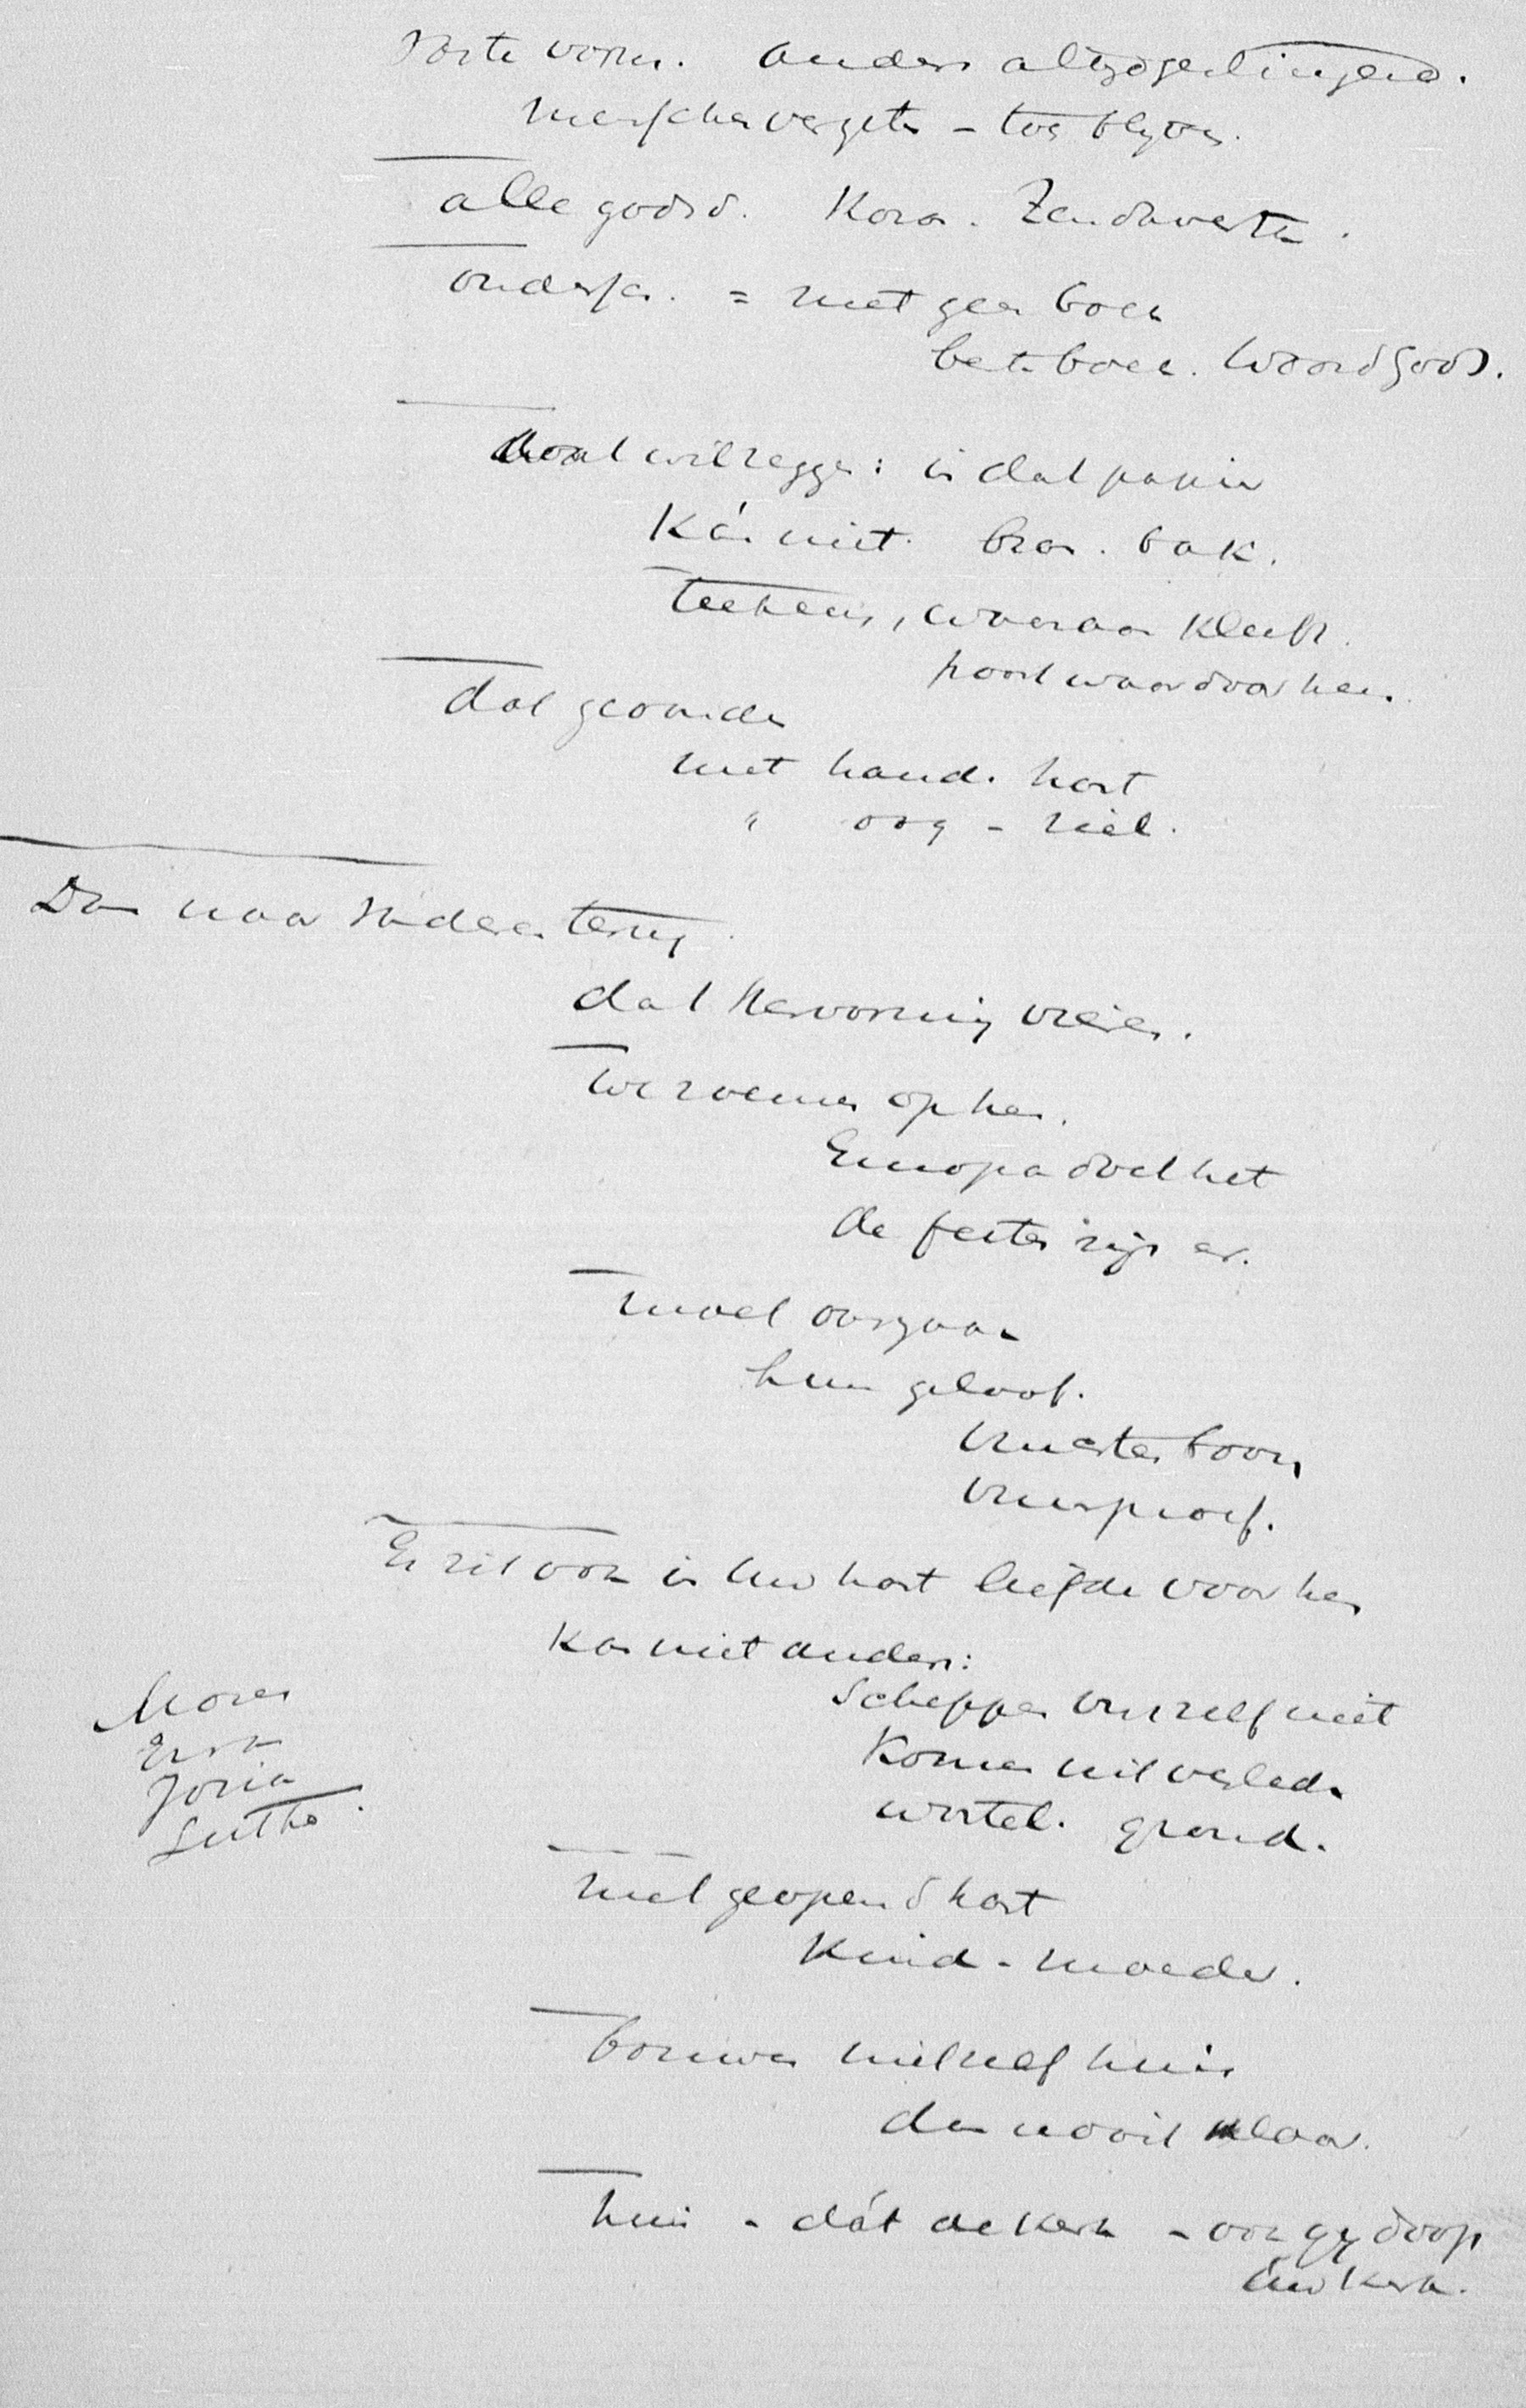 vaste vorm. anders altijd geslingerd.
menschen vergeten - toe blijven.
alle godsd. Koran. Zendavesta.
ondersch. = niet geen boek
beter boek. Woord Gods.
Want wil zeggen: in dat papier
Kán niet. bran. bak.
Teekens, waaraan kleeft.
poort waardoor heen.
Dat gevonden
met hand. hart
" oog - ziel.
Dan naar vaderen terug.
dat Hervorming vieren.
We roemen op hen.
Europa doet het
de feiten zijn er.
moed overgaan
hun geloof.
Musterboom
Vuurproef.
Er zit ook in Uw hart liefde voor hen
Kan niet anders:
Scheppen onszelf niet
Komen uit verleden
wortel. grond.
Mozes
Ezra
Jozia
Luther.
met geopend hart
Kind - moeder.
bouwen niet zelf huis
dan nooit klaar.
huis - dát de Kerk - ook gij doop
Uw Kerk.